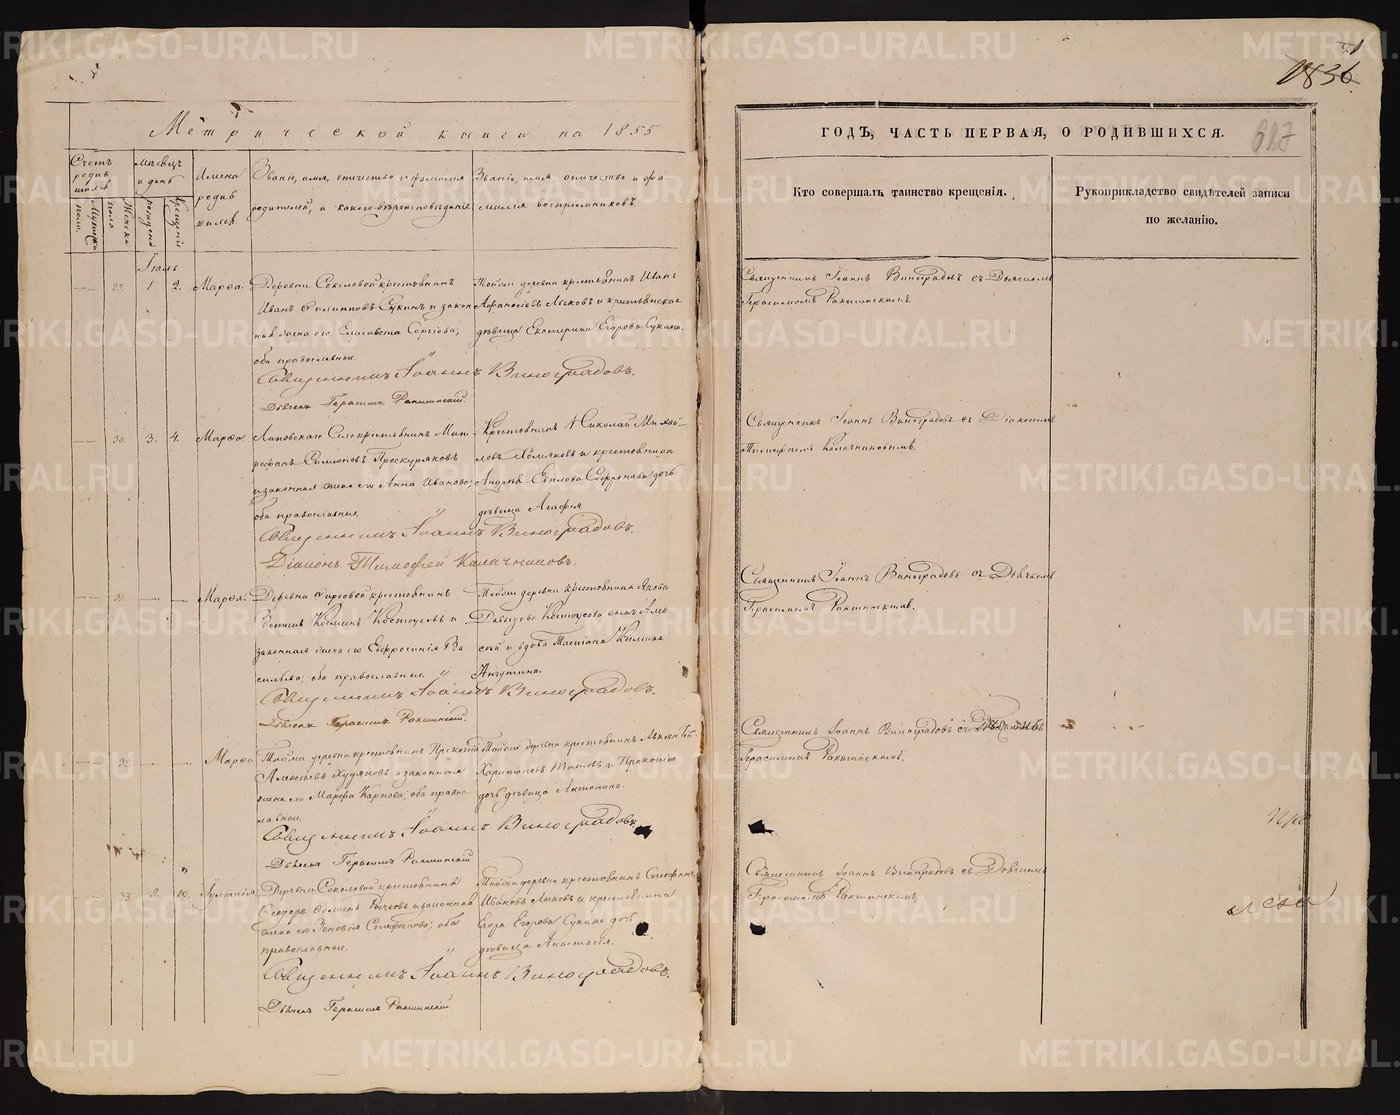 Метрической книги на 1855
Счетъ родившихся
Мужеска пола.
Женска пола
Мѣсяцъ и день
рожденія
крещенія
Имена родившихся.
Званіе, имя, отчество и фамилія
родителей, и какого вѣроисповѣданія
Званіе, имя, отчество и фа-
милія воспріемниковъ.
Іюль
29. 1 2. Марѳа.
Деревни Соколовой крестьянинъ
Иванъ Филипповъ Сукинъ и закон
ная жена его Елисавета Сергіева;
оба православные.
Тойже деревни крестьянинъ Иванъ
Афанасіевъ Лыковъ и крестьянская
дѣвица Екатерина Егорова Сукина.
Священникъ Іоаннъ Виноградовъ.
Дьячекъ Герасимъ Ракшинскій.
30. 3. 4. Марѳа.
Липовскаго Села крестьянинъ Мит-
рофанъ Симионовъ Проскуряковъ
и законная жена его Анна Иванова;
оба православные.
Крестьянинъ Николай Михай-
ловъ Холмяковъ и крестьянина
Андрея Софронова дочь
дѣвица Агафія
Священникъ Іоаннъ Виноградовъ.
Діаконъ Тимофей Калачниковъ.
31. — — Марѳа.
Деревни крестьянинъ
Козминъ Костоусовъ и
законная жена его Евфросинія Ва
сильева; оба православные.
Тойже деревни крестьянина Якова
Давыдова Костоусова сынъ Алек
сѣй и вдова Татіана
Священникъ Іоаннъ Виноградовъ.
Дьячекъ Герасимъ Ракшинскій.
Марѳа
Тойже деревни крестьянинъ Прокопій
Алексѣевъ Худяковъ и законная
жена его Марѳа Карпова; оба право-
славные.
Тойже деревни крестьянинъ
Харитоновъ Титовъ и Прокопія
дочь дѣвица Антонина
Священникъ Іоаннъ Виноградовъ.
Дьячекъ Герасимъ Ракшинскій
33. 9. 10. Іуліанія
Деревни Соколовой крестьянинъ
Ѳеодоръ и законная
жена его Зеновія Стефанова; оба
православные.
Тойже деревни крестьянинъ Стефанъ
Ивановъ Лыковъ и крестьянина
Егора Егорова Сукина дочь
дѣвица Анастасія.
Священникъ Іоаннъ Виноградовъ.
Дьячекъ Герасимъ Ракшинскій
1836.
ГОДЪ, ЧАСТЬ ПЕРВАЯ, О РОДИВШИХСЯ.
687
Кто совершалъ таинство крещенія.
Рукоприкладство свидѣтелей записи
по желанію.
Священникъ Іоаннъ Виноградовъ съ Дьячкомъ
Герасимомъ Ракшинскимъ.
Священникъ Іоаннъ Виноградовъ съ Діакономъ
Тимофеемъ Калачниковымъ.
Священникъ Іоаннъ Виноградовъ съ Дьячкомъ
Герасимомъ Ракшинскимъ.
Священникъ Іоаннъ Виноградовъ съ Дьячкомъ
Герасимомъ Ракшинскимъ.
Священникъ Іоаннъ Виноградовъ съ Дьячкомъ
Герасимомъ Ракшинскимъ.
METRIKI.GASO-URAL.RU